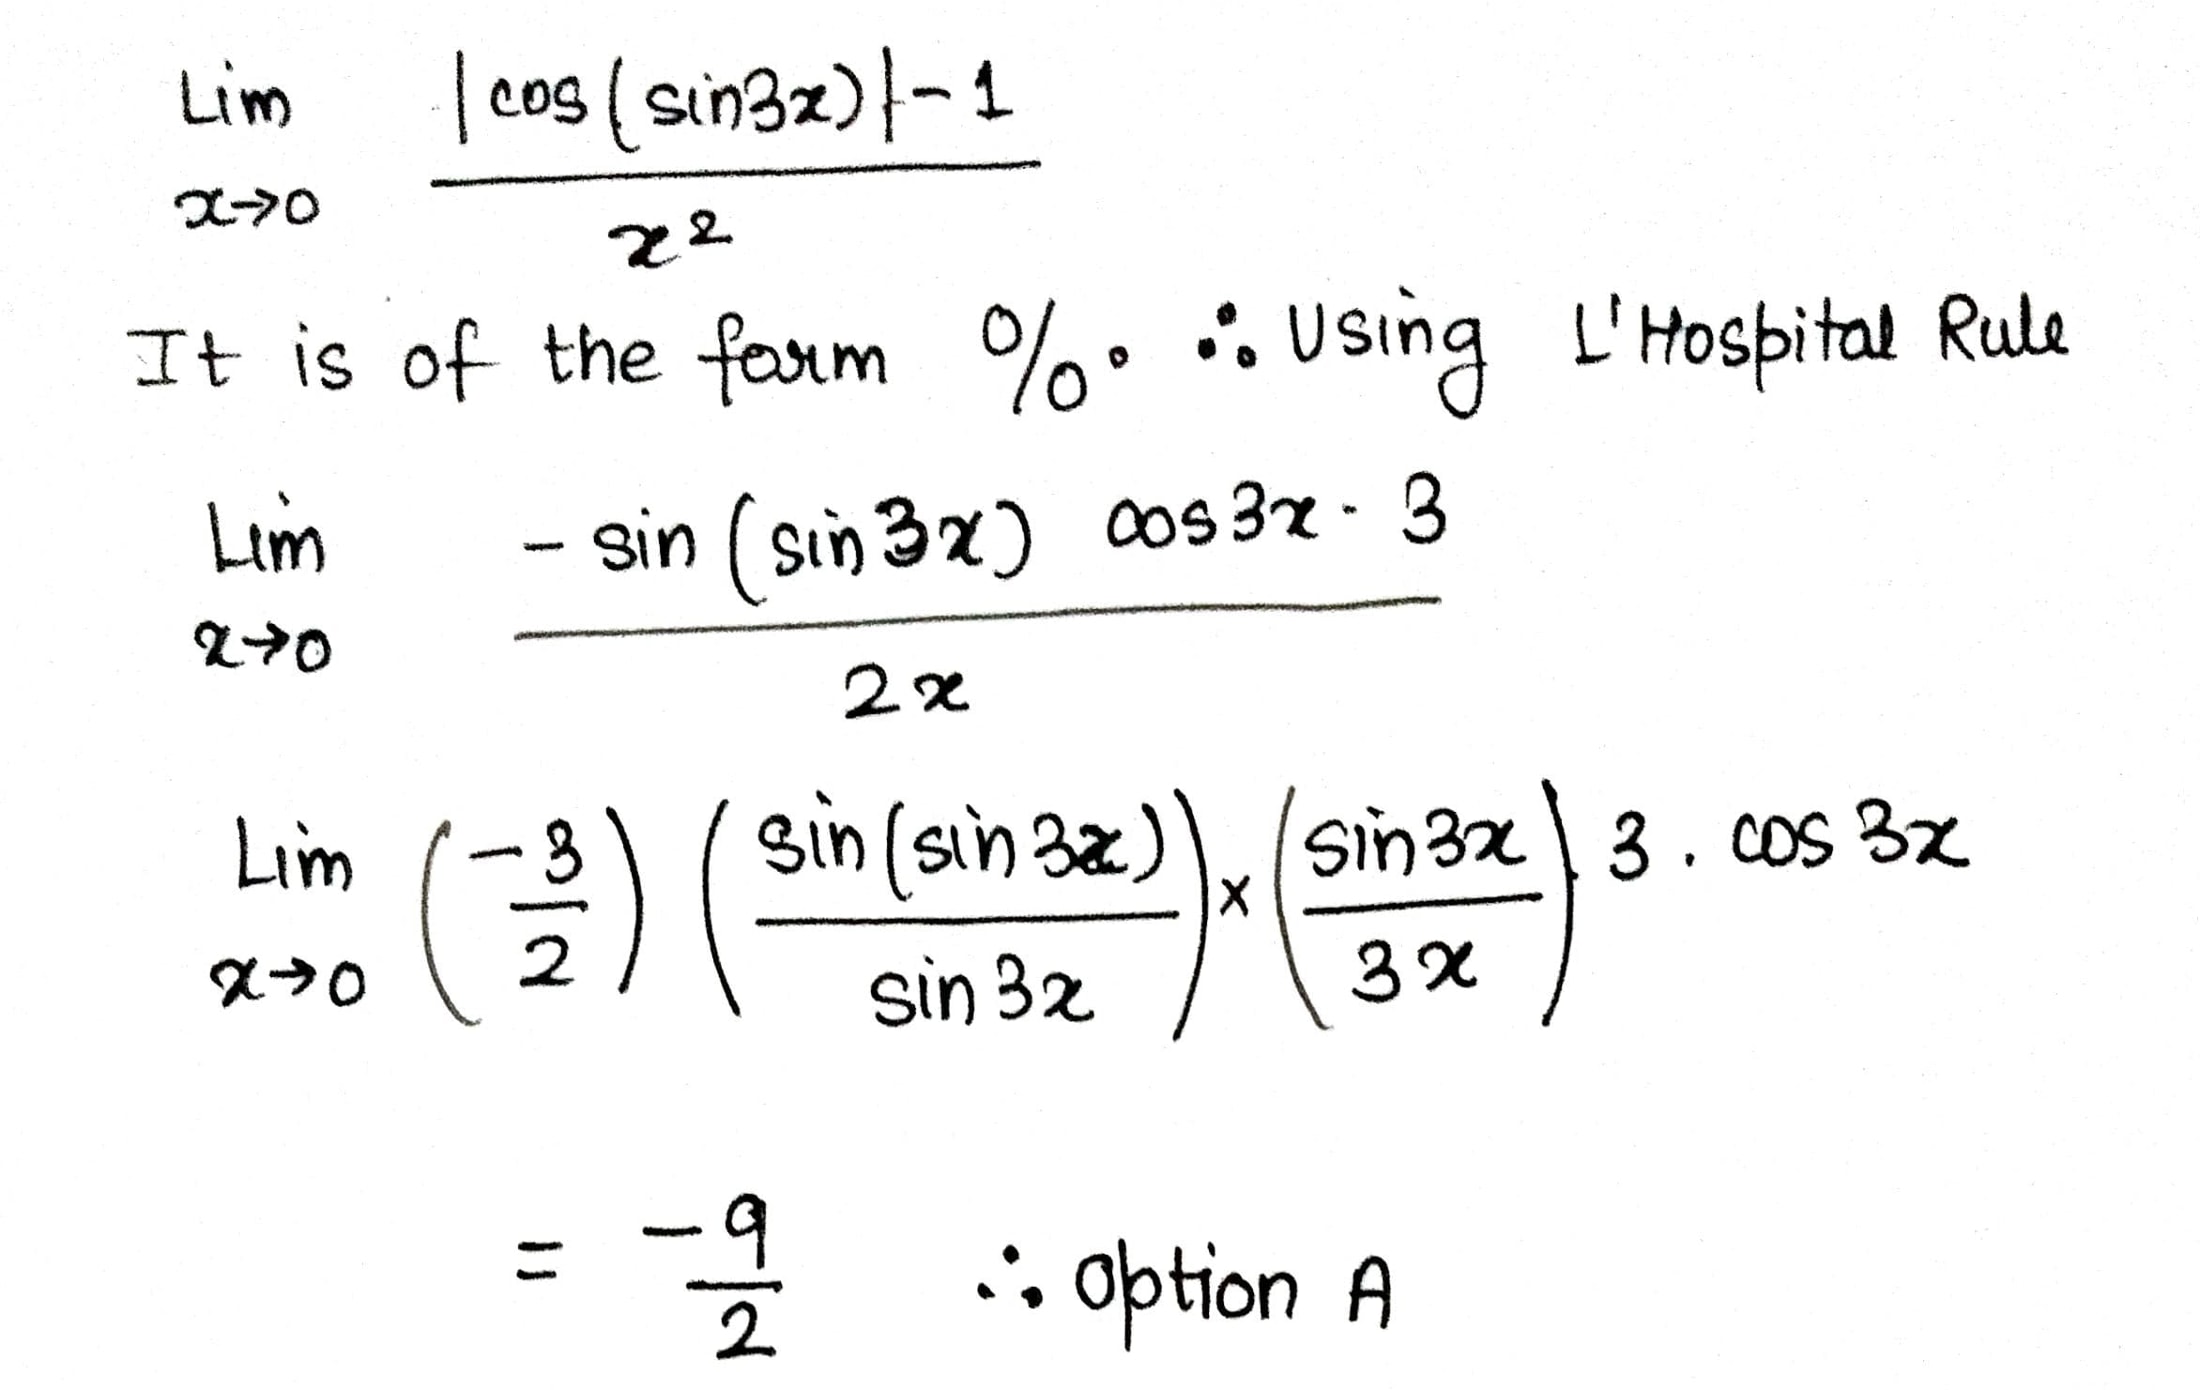 Lim |cos(sin3x)|-1
x→0 x²
It is of the form 0/0. ∴ Using L'Hospital Rule
Lim - sin (sin 3x) cos3x. 3
x→0 2x
Lim (-3/2) (sin(sin 3x)/sin 3x) × (sin 3x/3x) 3. cos 3x
x→0
= -9/2 ∴ Option A